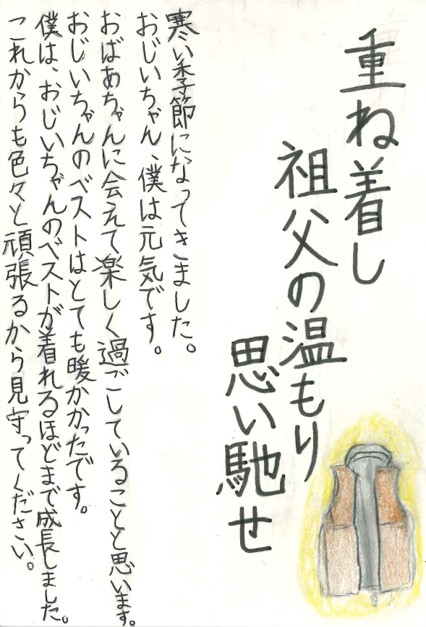 重ね着し
祖父の温もり
思い馳せ
寒い季節になってきました。
おじいちゃん、僕は元気です。
おばあちゃんに会えて楽しく過ごしていることと思います。
おじいちゃんのベストはとても暖かかったです。
僕は、おじいちゃんのベストが着れるほどまで成長しました。
これからも色々と頑張るから見守ってください。